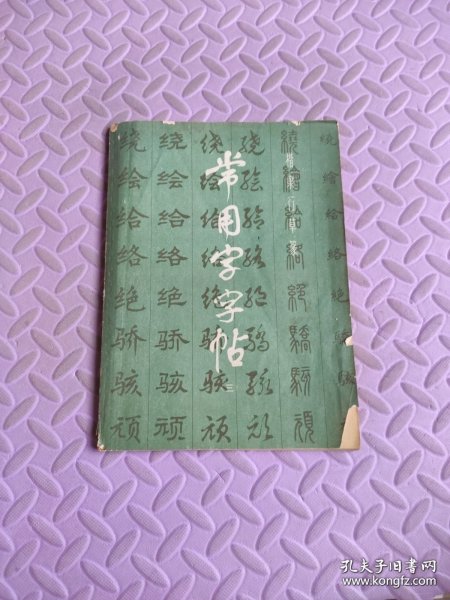 常用字字帖
三
绕 绕 绕 绕 繞 绕
绘 绘 绘 绘 繪 繪
给 给 给 给 給 给
络 络 络 络 絡 络
绝 绝 绝 绝 絕 绝
骄 骄 骄 骄 驕
骇 骇 骇 骇 駭 骇
顽 顽 顽 顽 頑
孔夫子旧书网
www.kongfz.com